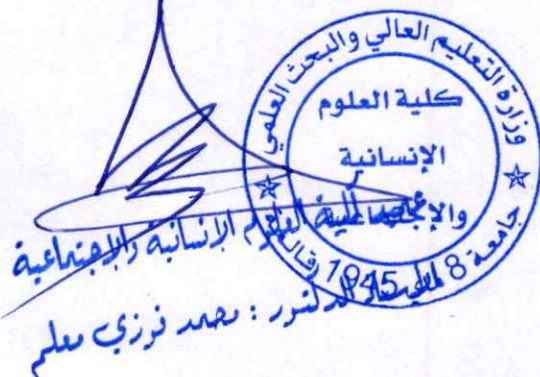 وزارة التعليم العالي والبحث العلمي
كلية العلوم
الإنسانية
والإجتماعية
جامعة 8 ماي 1945 قالمة
عميد كلية العلوم الإنسانية والإجتماعية
الدكتور : محمد فوزي معلم